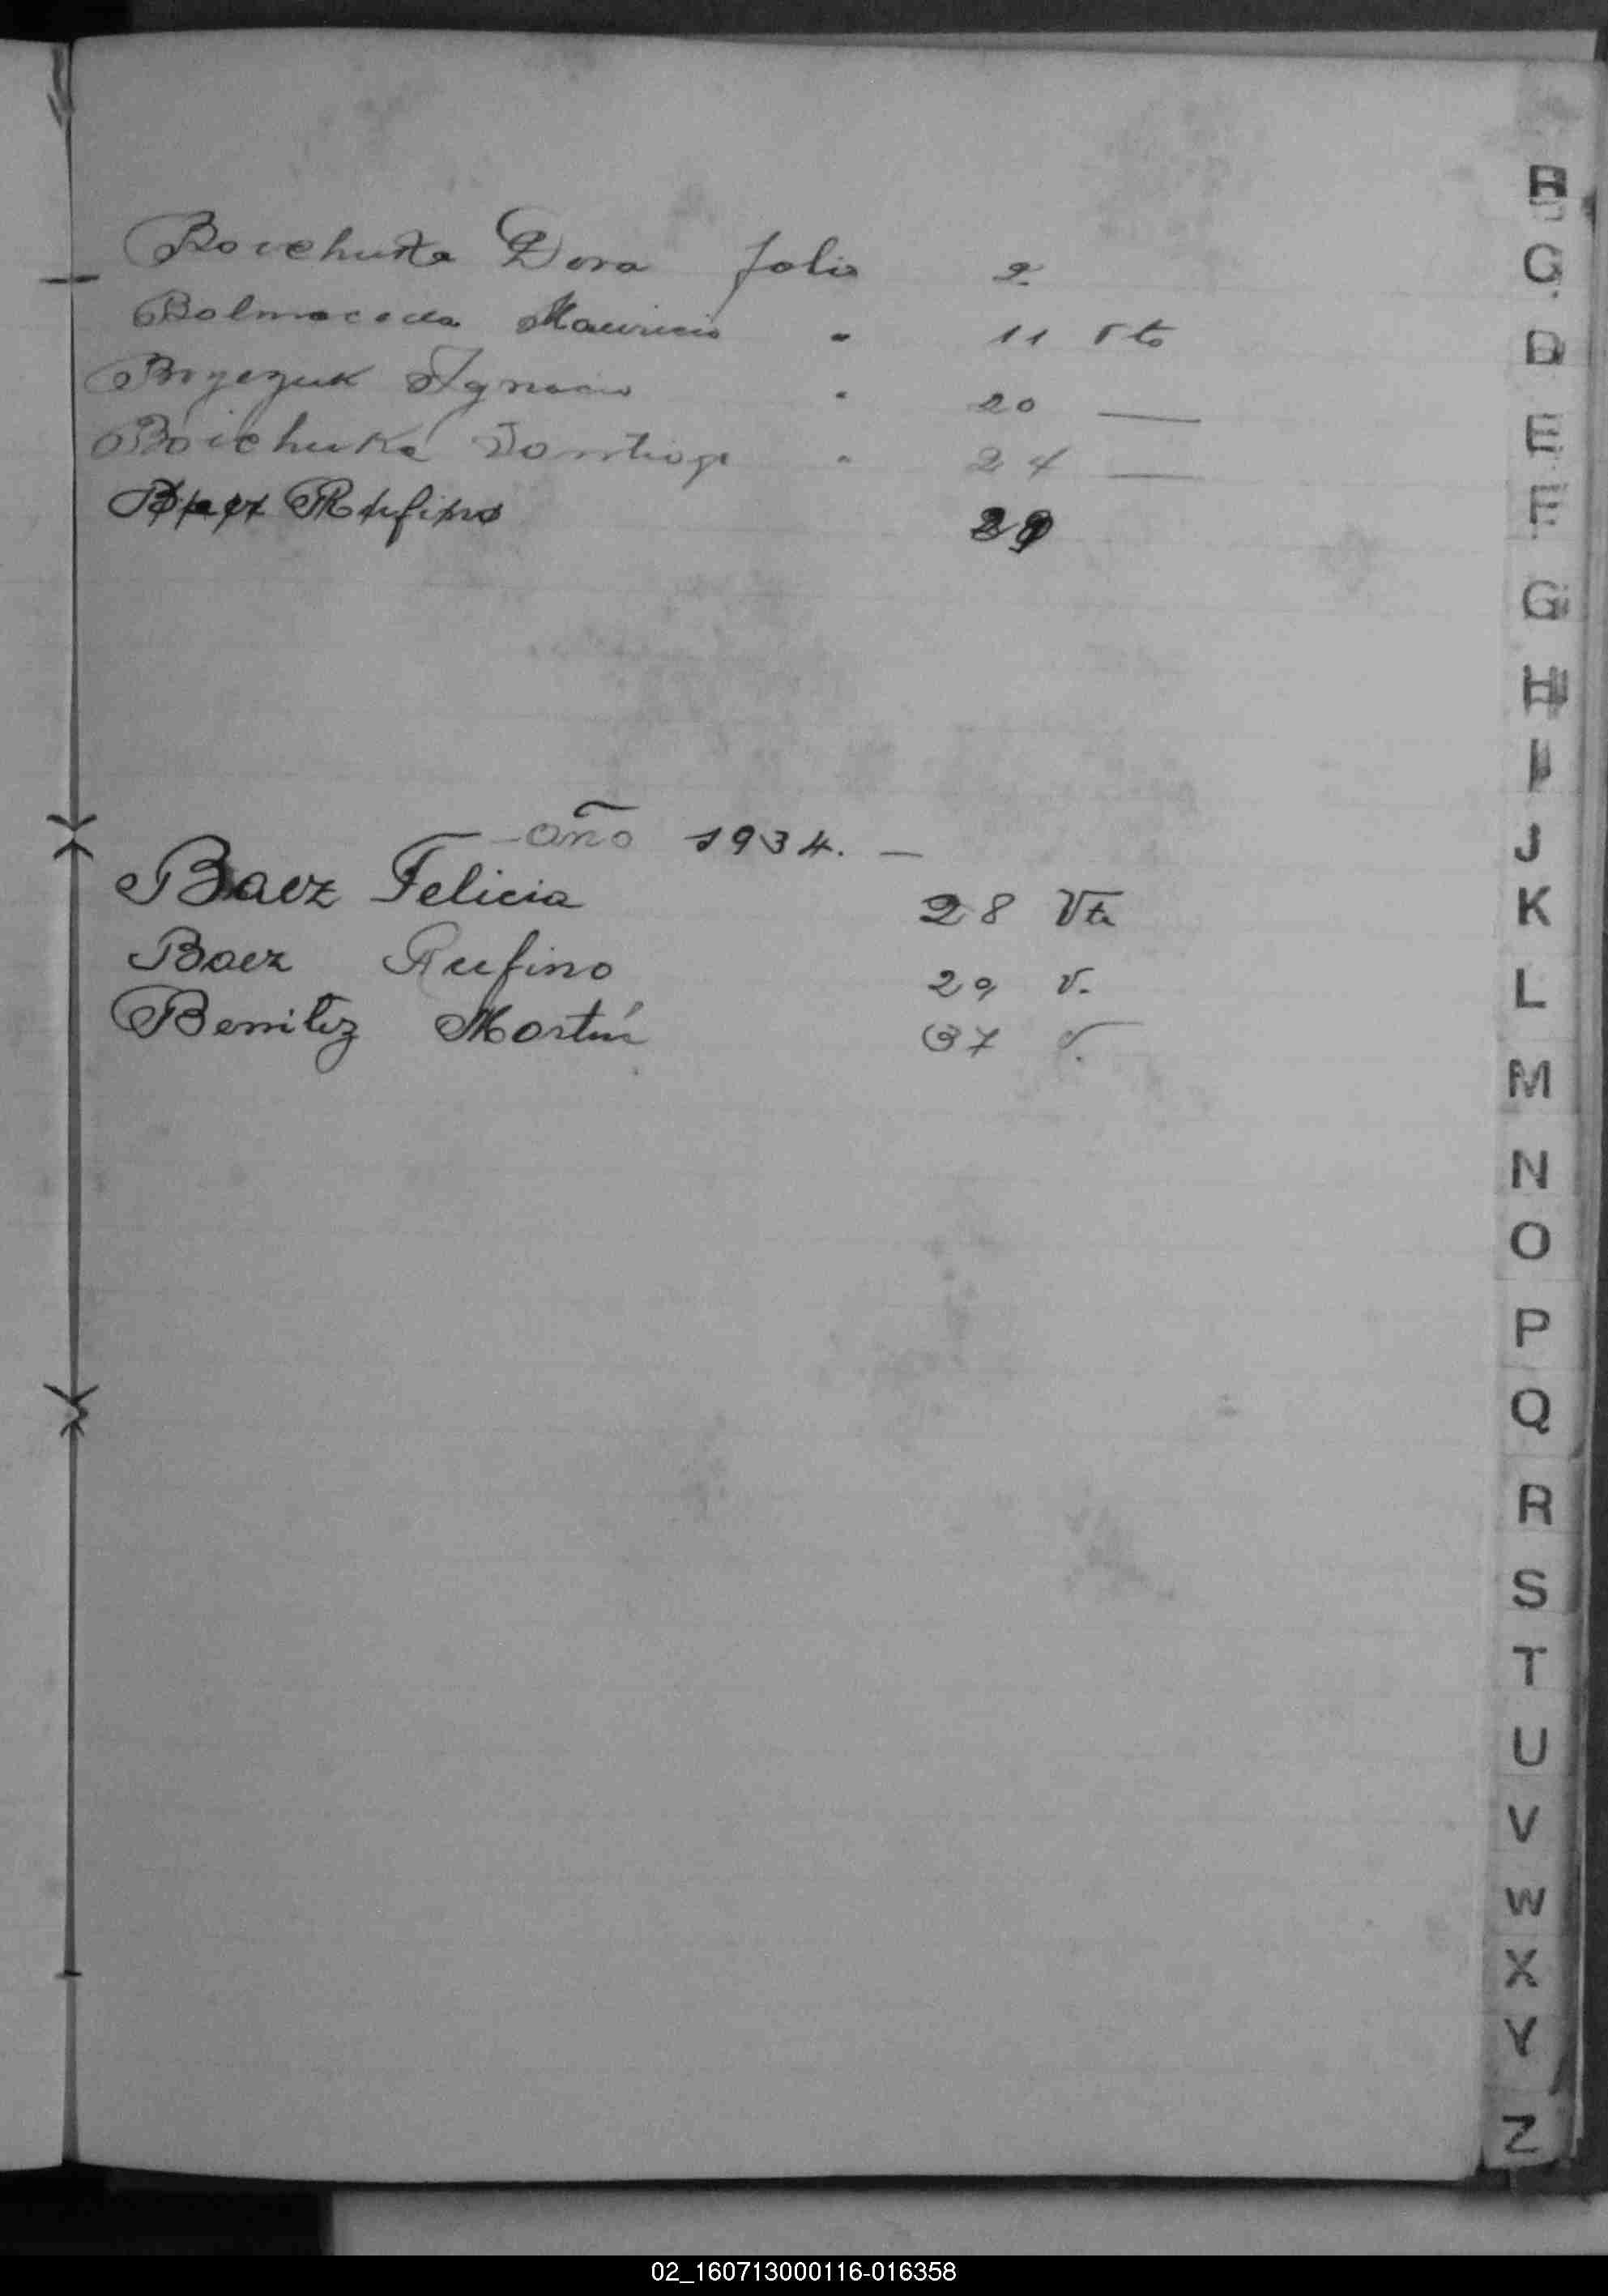 Boichuka Dora folio 2
Balmaceda Mauricio " 11 vto
Ignacio " 20 —
Boichuka Santiago " 24 —
Baez Rufino 29
- año 1934. -
Baez Felicia 28 Vta
Baez Rufino 29 v.
Benitez Martín 37 v.
B
C
D
E
F
G
H
I
J
K
L
M
N
O
P
Q
R
S
T
U
V
W
X
Y
Z
02_160713000116-016358